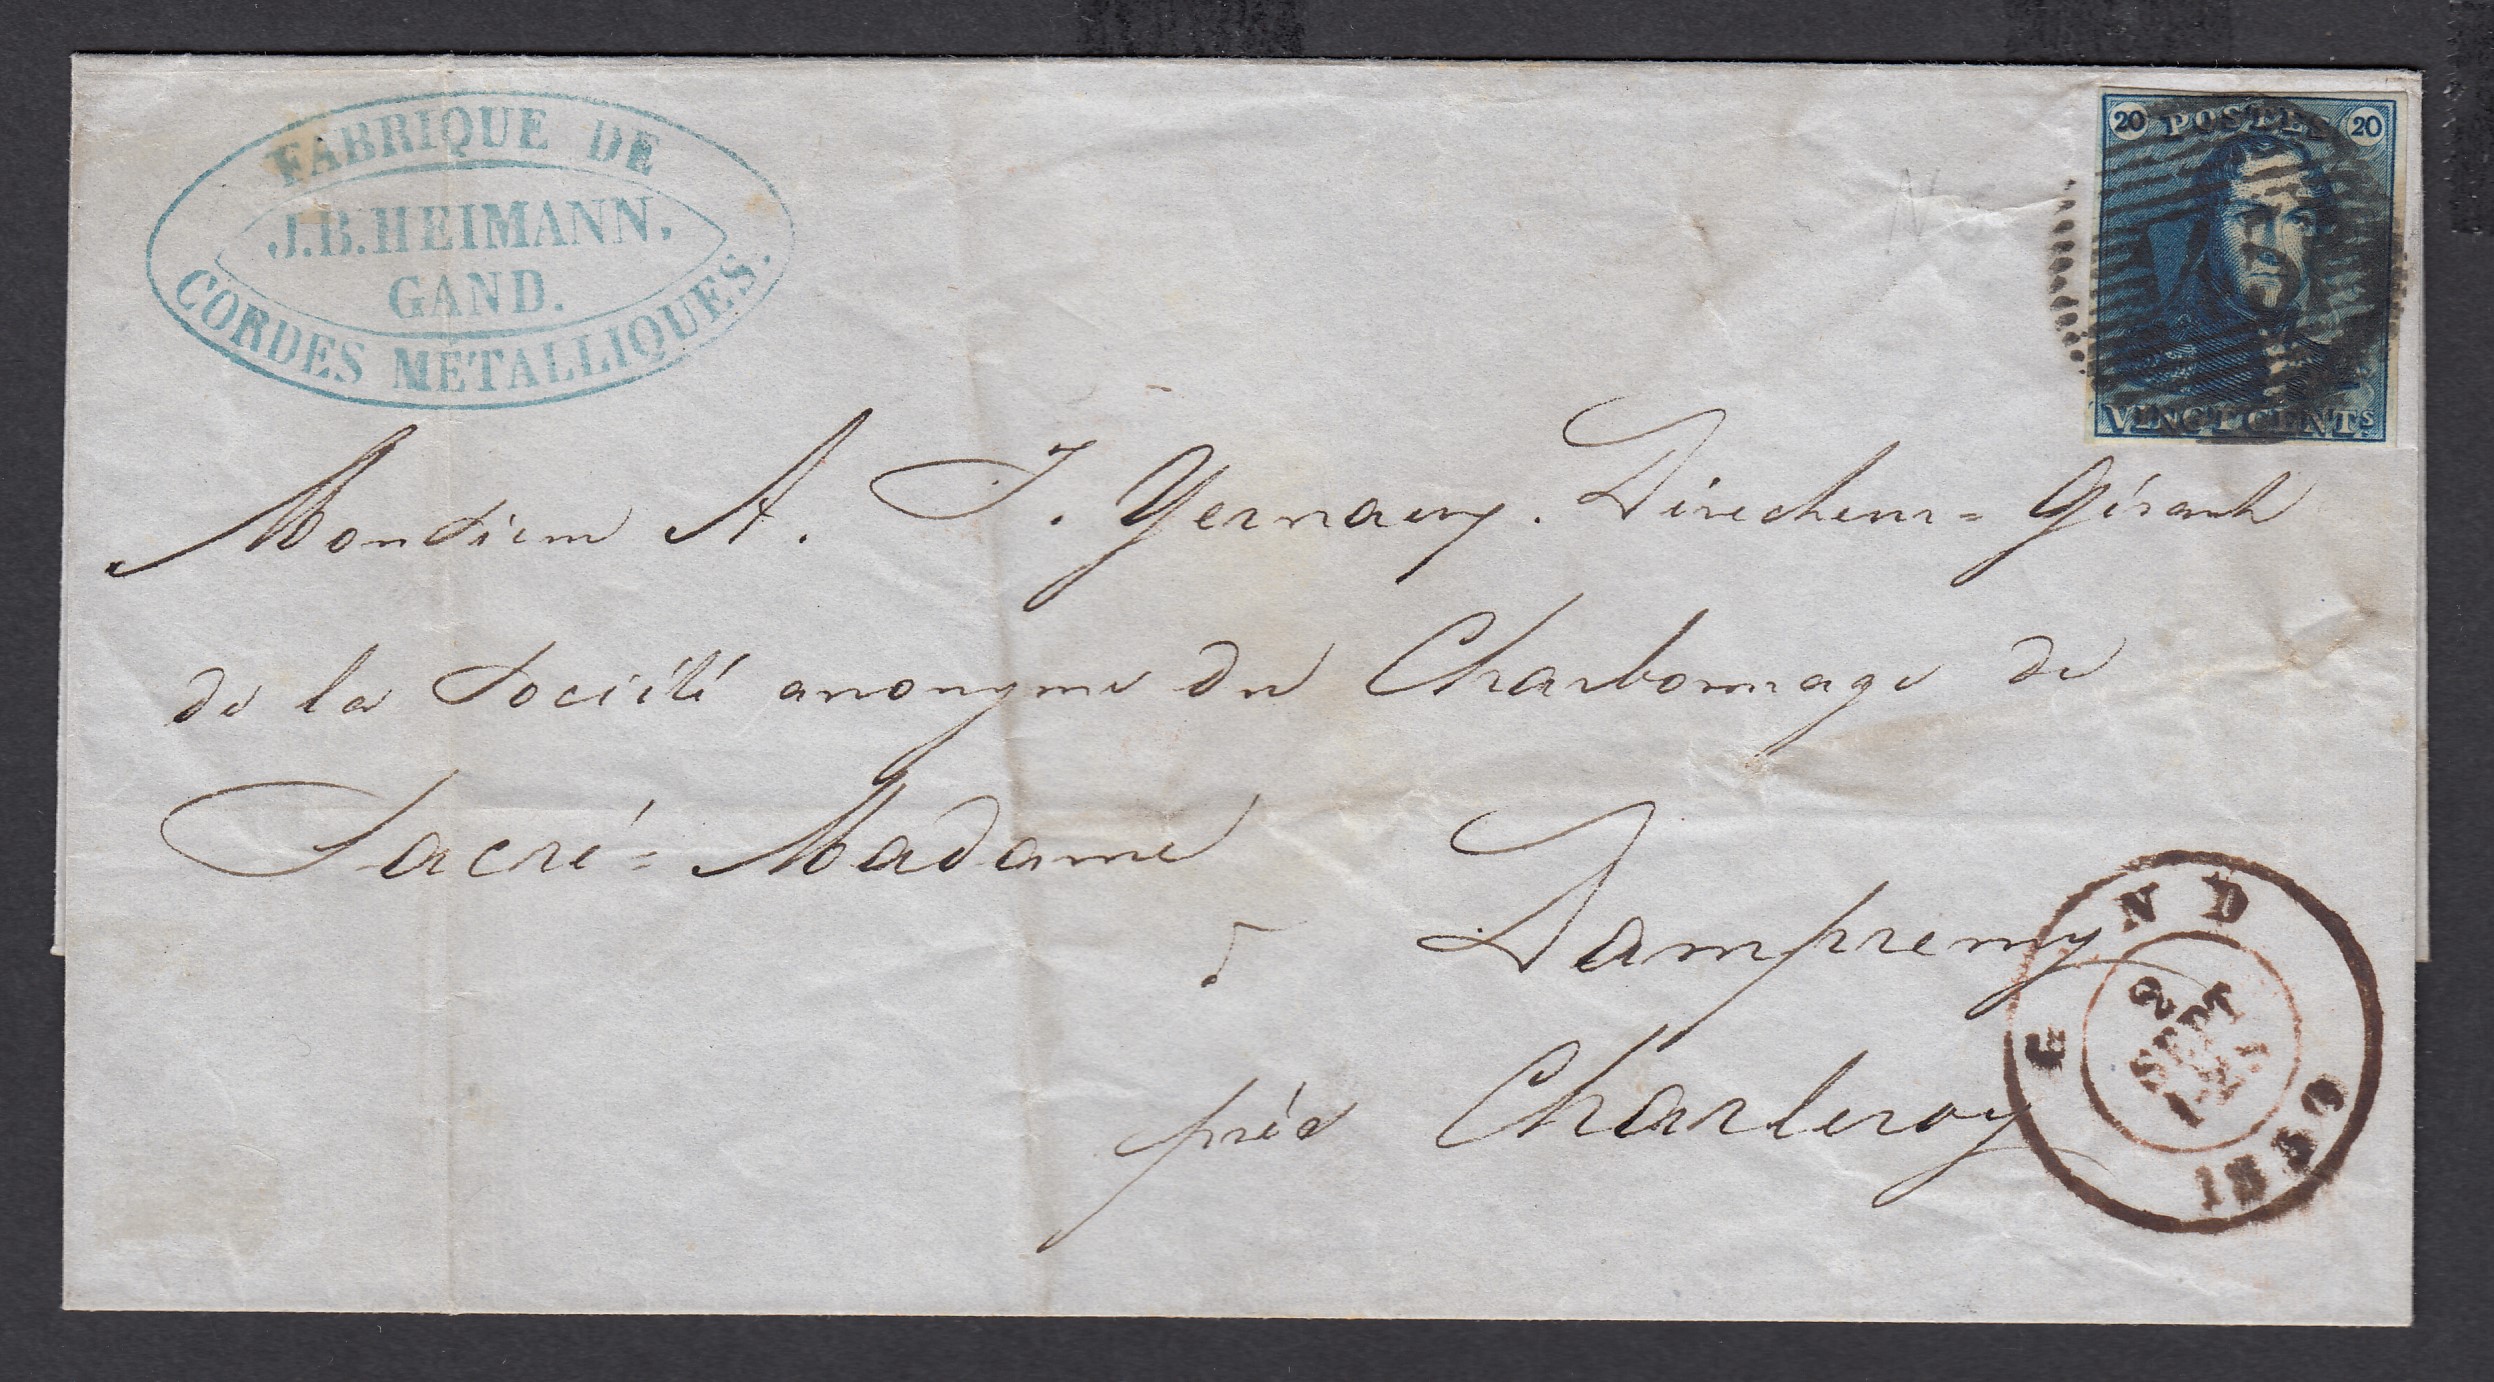 FABRIQUE DE
J.B. HEIMANN,
GAND.
CORDES MÉTALLIQUES.
20 POSTES 20
VINGT CENTS
Monsieur A. J. Yernaux. Directeur=Gérant
de la Société anonyme du Charbonnage de
Sacré=Madame
à Dampremy
près Charleroy
GAND
2
SEPT
1850